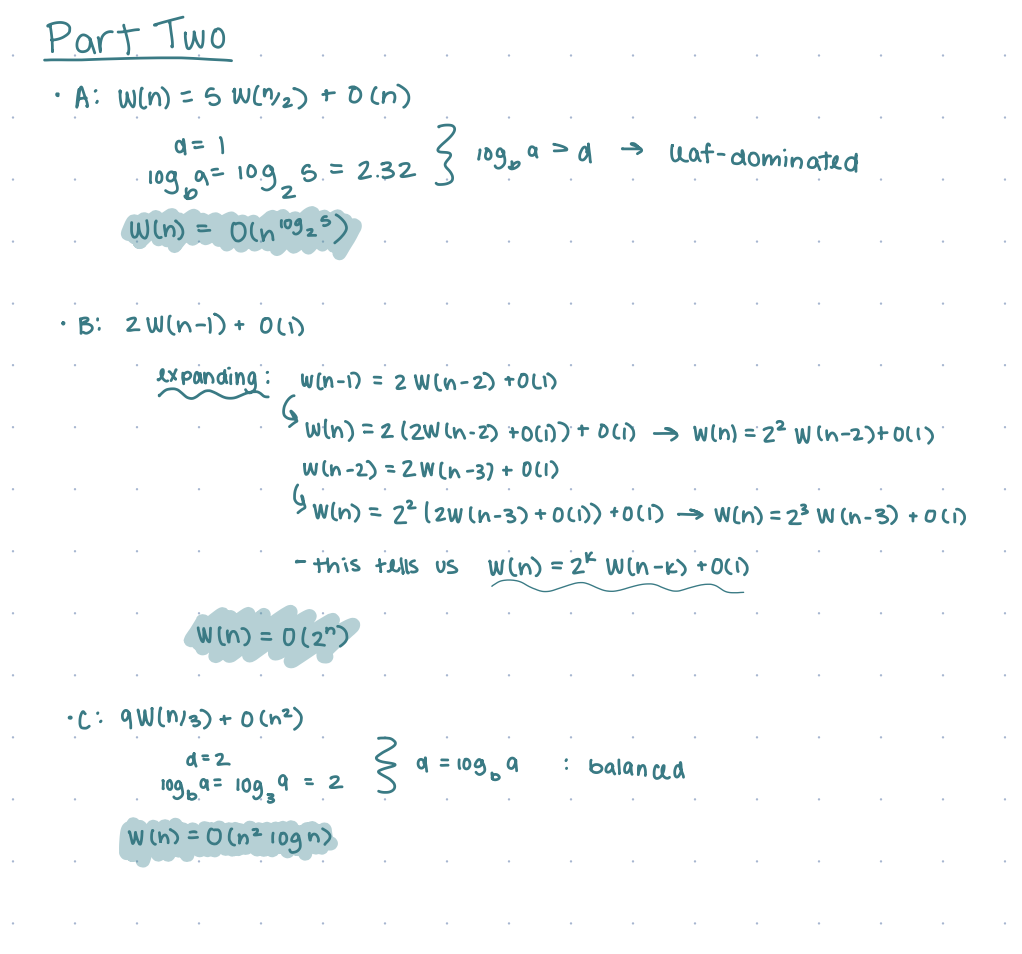 Part Two
• A: W(n) = 5 W(n/2) + O(n)
d = 1
log_b a = log_2 5 = 2.32 } log_b a > d → leaf-dominated
W(n) = O(n^log_2 5)
• B: 2W(n-1) + O(1)
expanding: W(n-1) = 2W(n-2) + O(1)
W(n) = 2(2W(n-2) + O(1)) + O(1) → W(n) = 2² W(n-2) + O(1)
W(n-2) = 2W(n-3) + O(1)
W(n) = 2² (2W(n-3) + O(1)) + O(1) → W(n) = 2³ W(n-3) + O(1)
- this tells us W(n) = 2^k W(n-k) + O(1)
W(n) = O(2ⁿ)
• C: 9W(n/3) + O(n²)
d = 2
log_b a = log_3 9 = 2 } d = log_b a : balanced
W(n) = O(n² log n)